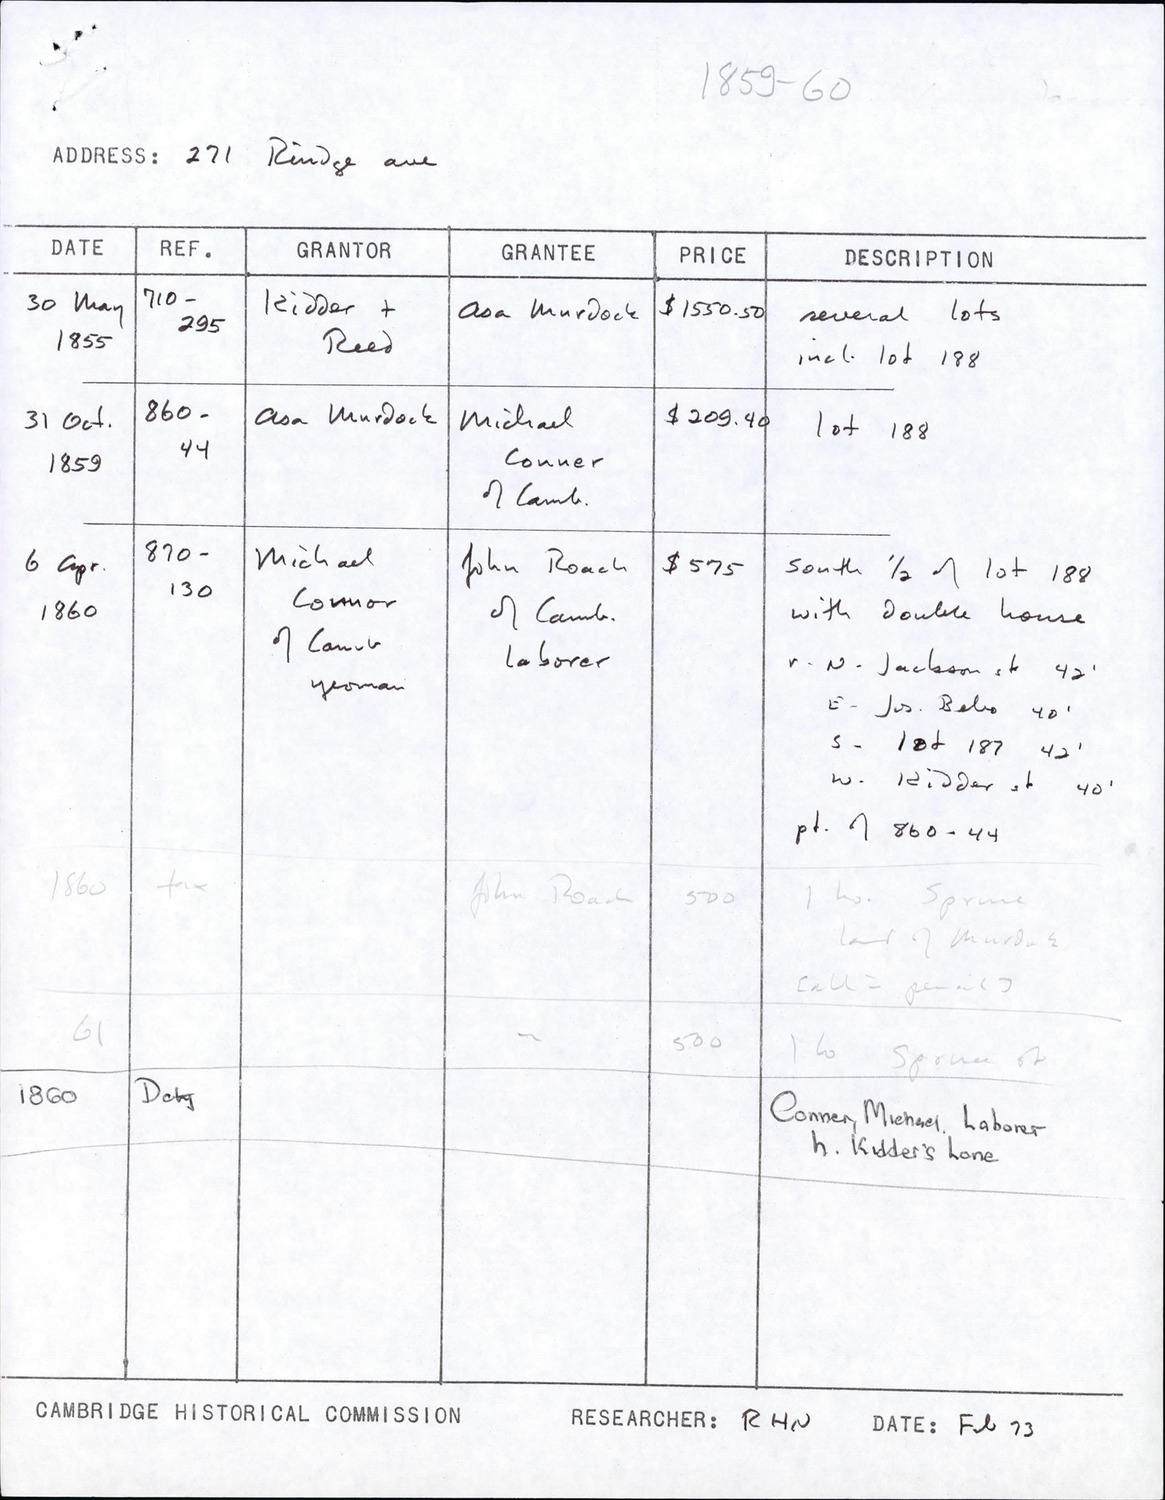 1859-60
ADDRESS: 271 Rindge ave
DATE REF. GRANTOR GRANTEE PRICE DESCRIPTION
30 May 710- Kidder + Asa Murdock $1550.50 several lots
1855 295 Reed incl. lot 188
31 Oct. 860- Asa Murdock Michael $209.40 lot 188
1859 44 Conner
of Camb.
6 Apr. 870- Michael John Roach $575 South 1/2 of lot 188
1860 130 Connor of Camb. with double house
of Camb laborer r. N- Jackson st 42'
yeoman E- Jos. 40'
S- lot 187 42'
W. Kidder st 40'
pt. of 860-44
1860 tax John Roach 500 1 ho. Spruce
land of Murdock
61 ~ 500 1 ho Spruce st
1860 Dctry Conner, Michael, Laborer
h. Kidder's Lane
CAMBRIDGE HISTORICAL COMMISSION RESEARCHER: RHN DATE: Feb 73